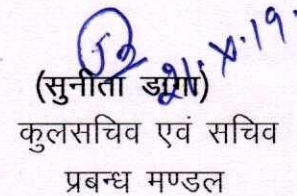 21.X.19.
(सुनीता डागा)
कुलसचिव एवं सचिव
प्रबन्ध मण्डल